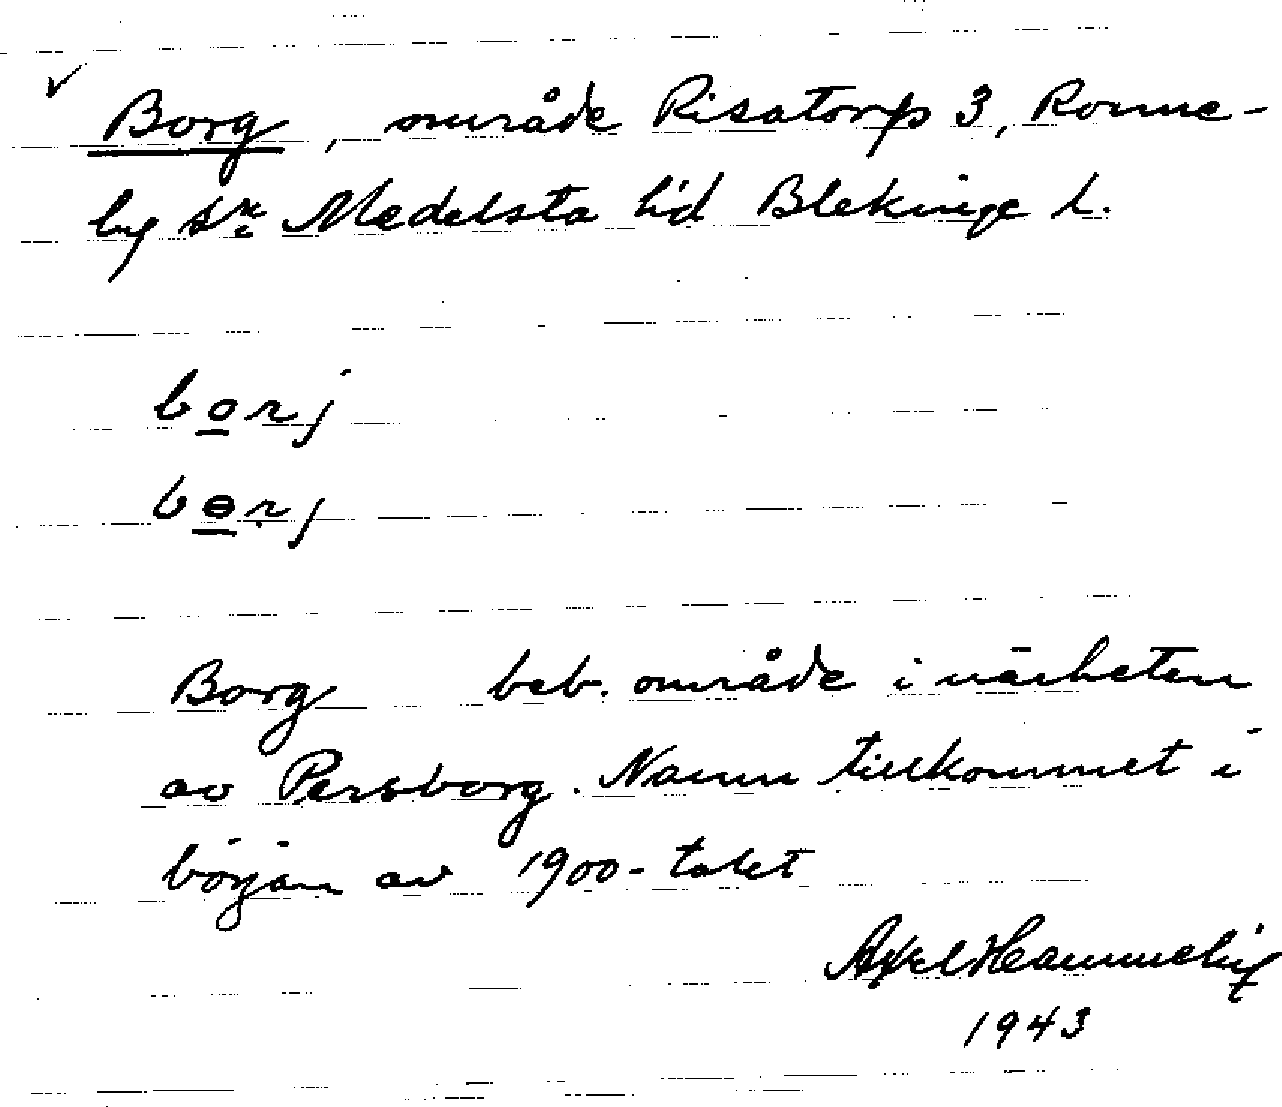 Borg, område Risatorp 3, Ronne-
by sn Medelsta hd Blekinge l.
borj
bɵrj
Borg beb. område i närheten
av Persborg. Namn tillkommet i
början av 1900-talet
Axel
1943